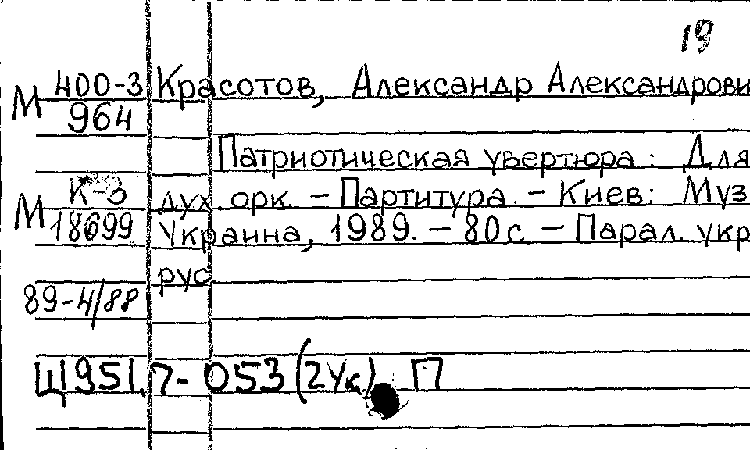 19
М 400-3 Красотов, Александр Александрови
964
Патриотическая увертюра: Для
К-3 дух. орк. – Партитура. – Киев: Муз
М 18699 Украина, 1989. – 80 с. – Парал. укр
рус
89-4/88
Щ951.7-053(2Ук) П